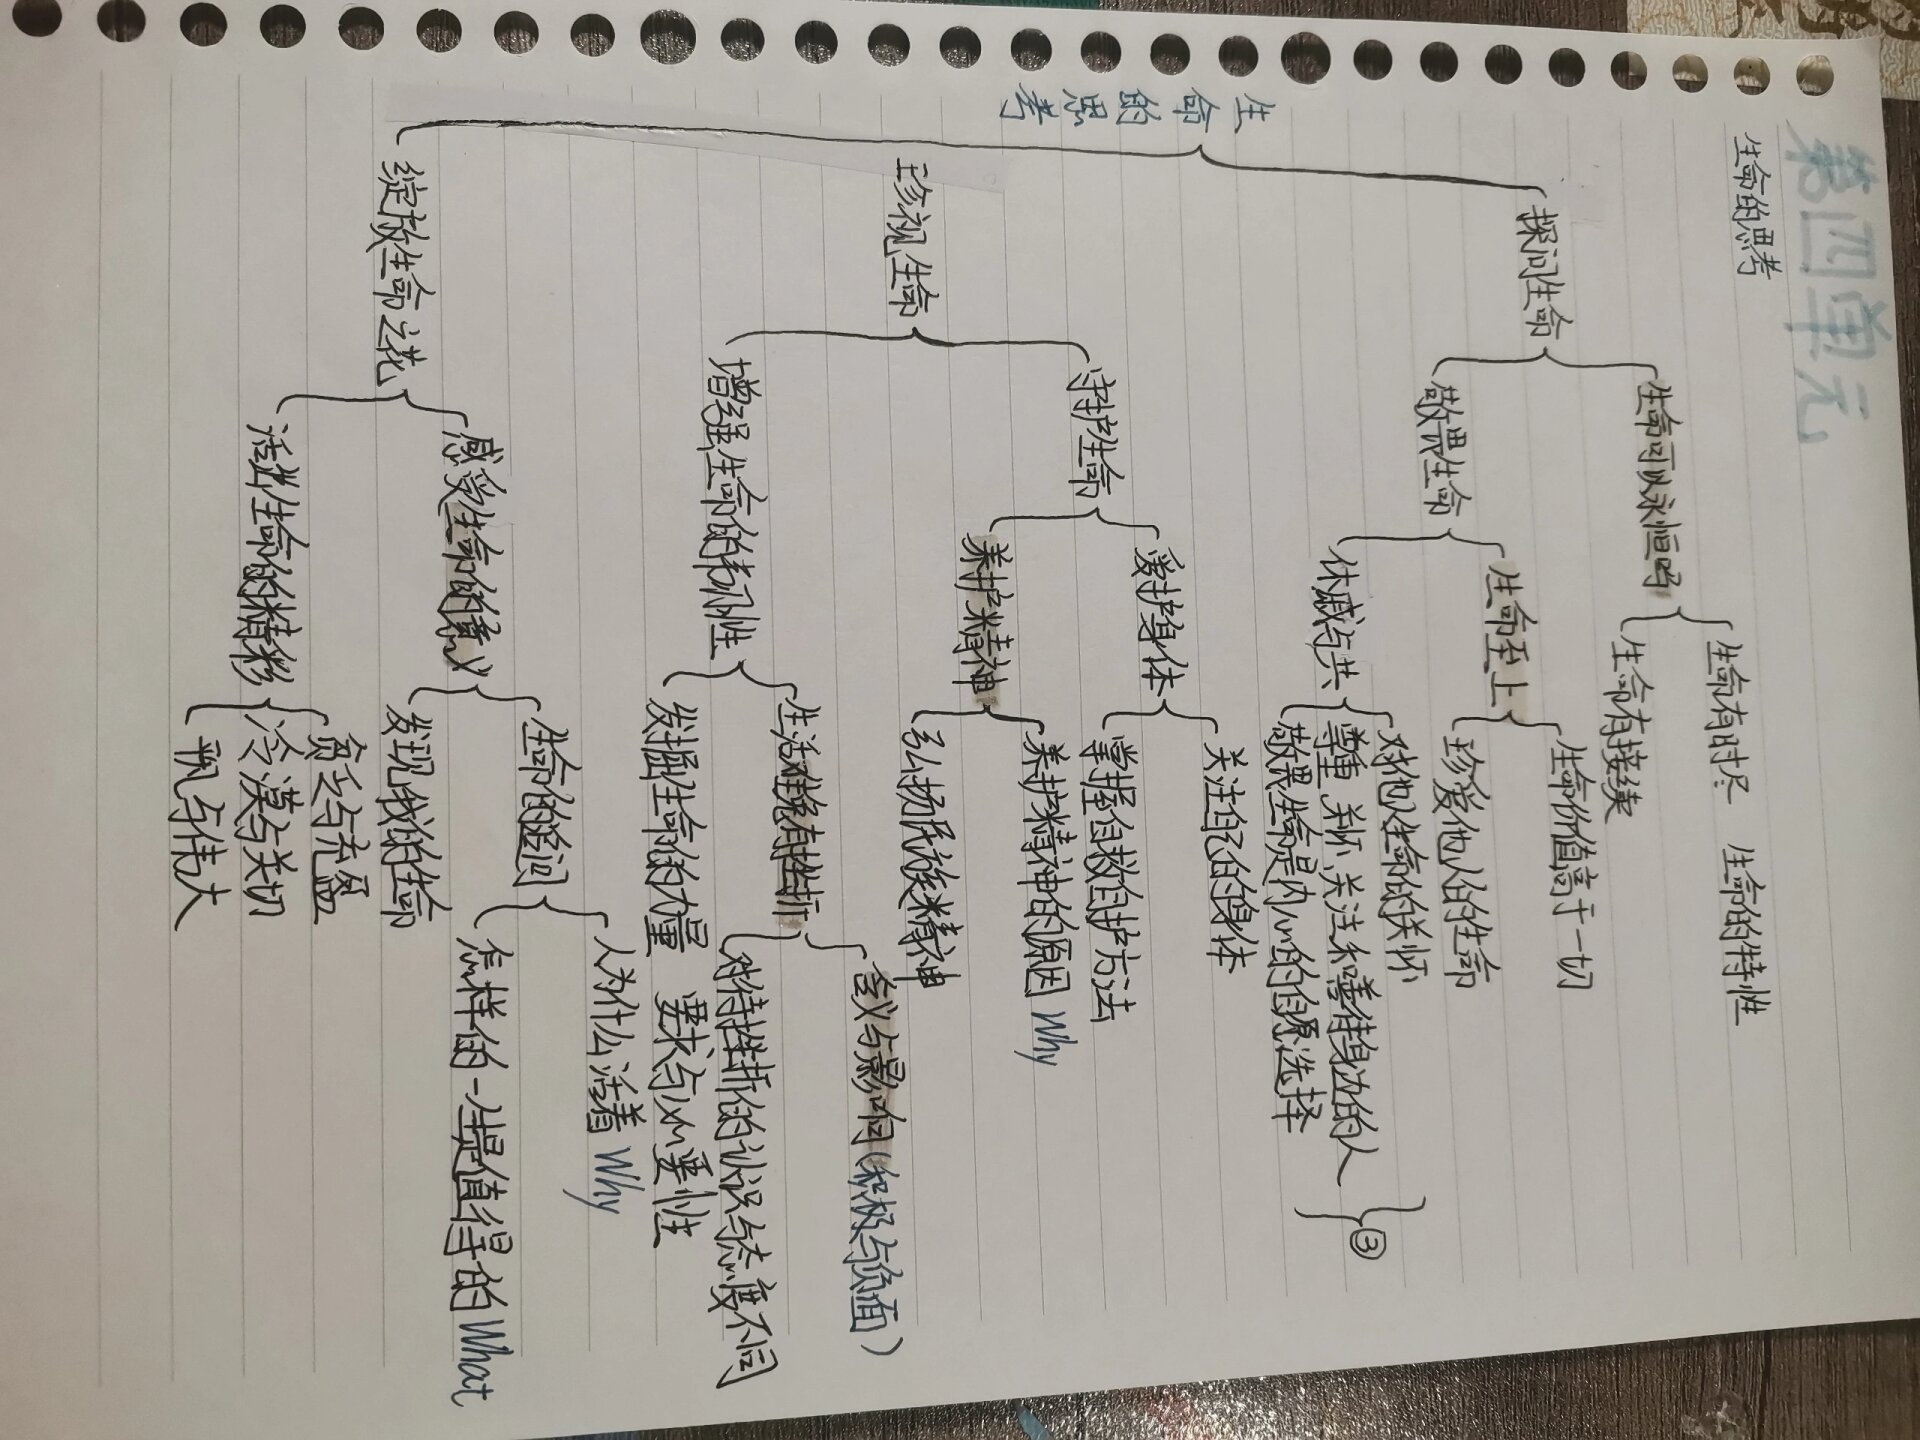 第四单元
生命的思考
生命的思考
探问生命
生命可以永恒吗
生命有时尽 生命的特性
生命有接续
敬畏生命
生命至上
生命价值高于一切
珍爱他人的生命
休戚与共
对他人生命的关怀
尊重 关注和善待身边的人
敬畏生命是内心的自愿选择
③
珍视生命
守护生命
爱护身体
关注自己的身体
掌握自救自护方法
养护精神
养护精神的原因 Why
弘扬民族精神
增强生命的韧性
生活难免有挫折
含义与影响(积极与负面)
对待挫折的认识与态度不同
发掘生命的力量 要求与必要性
绽放生命之花
感受生命的意义
生命的追问
人为什么活着 Why
怎样的一生是值得的 What
发现我的生命
活出生命的精彩
贫乏与充盈
冷漠与关切
平凡与伟大